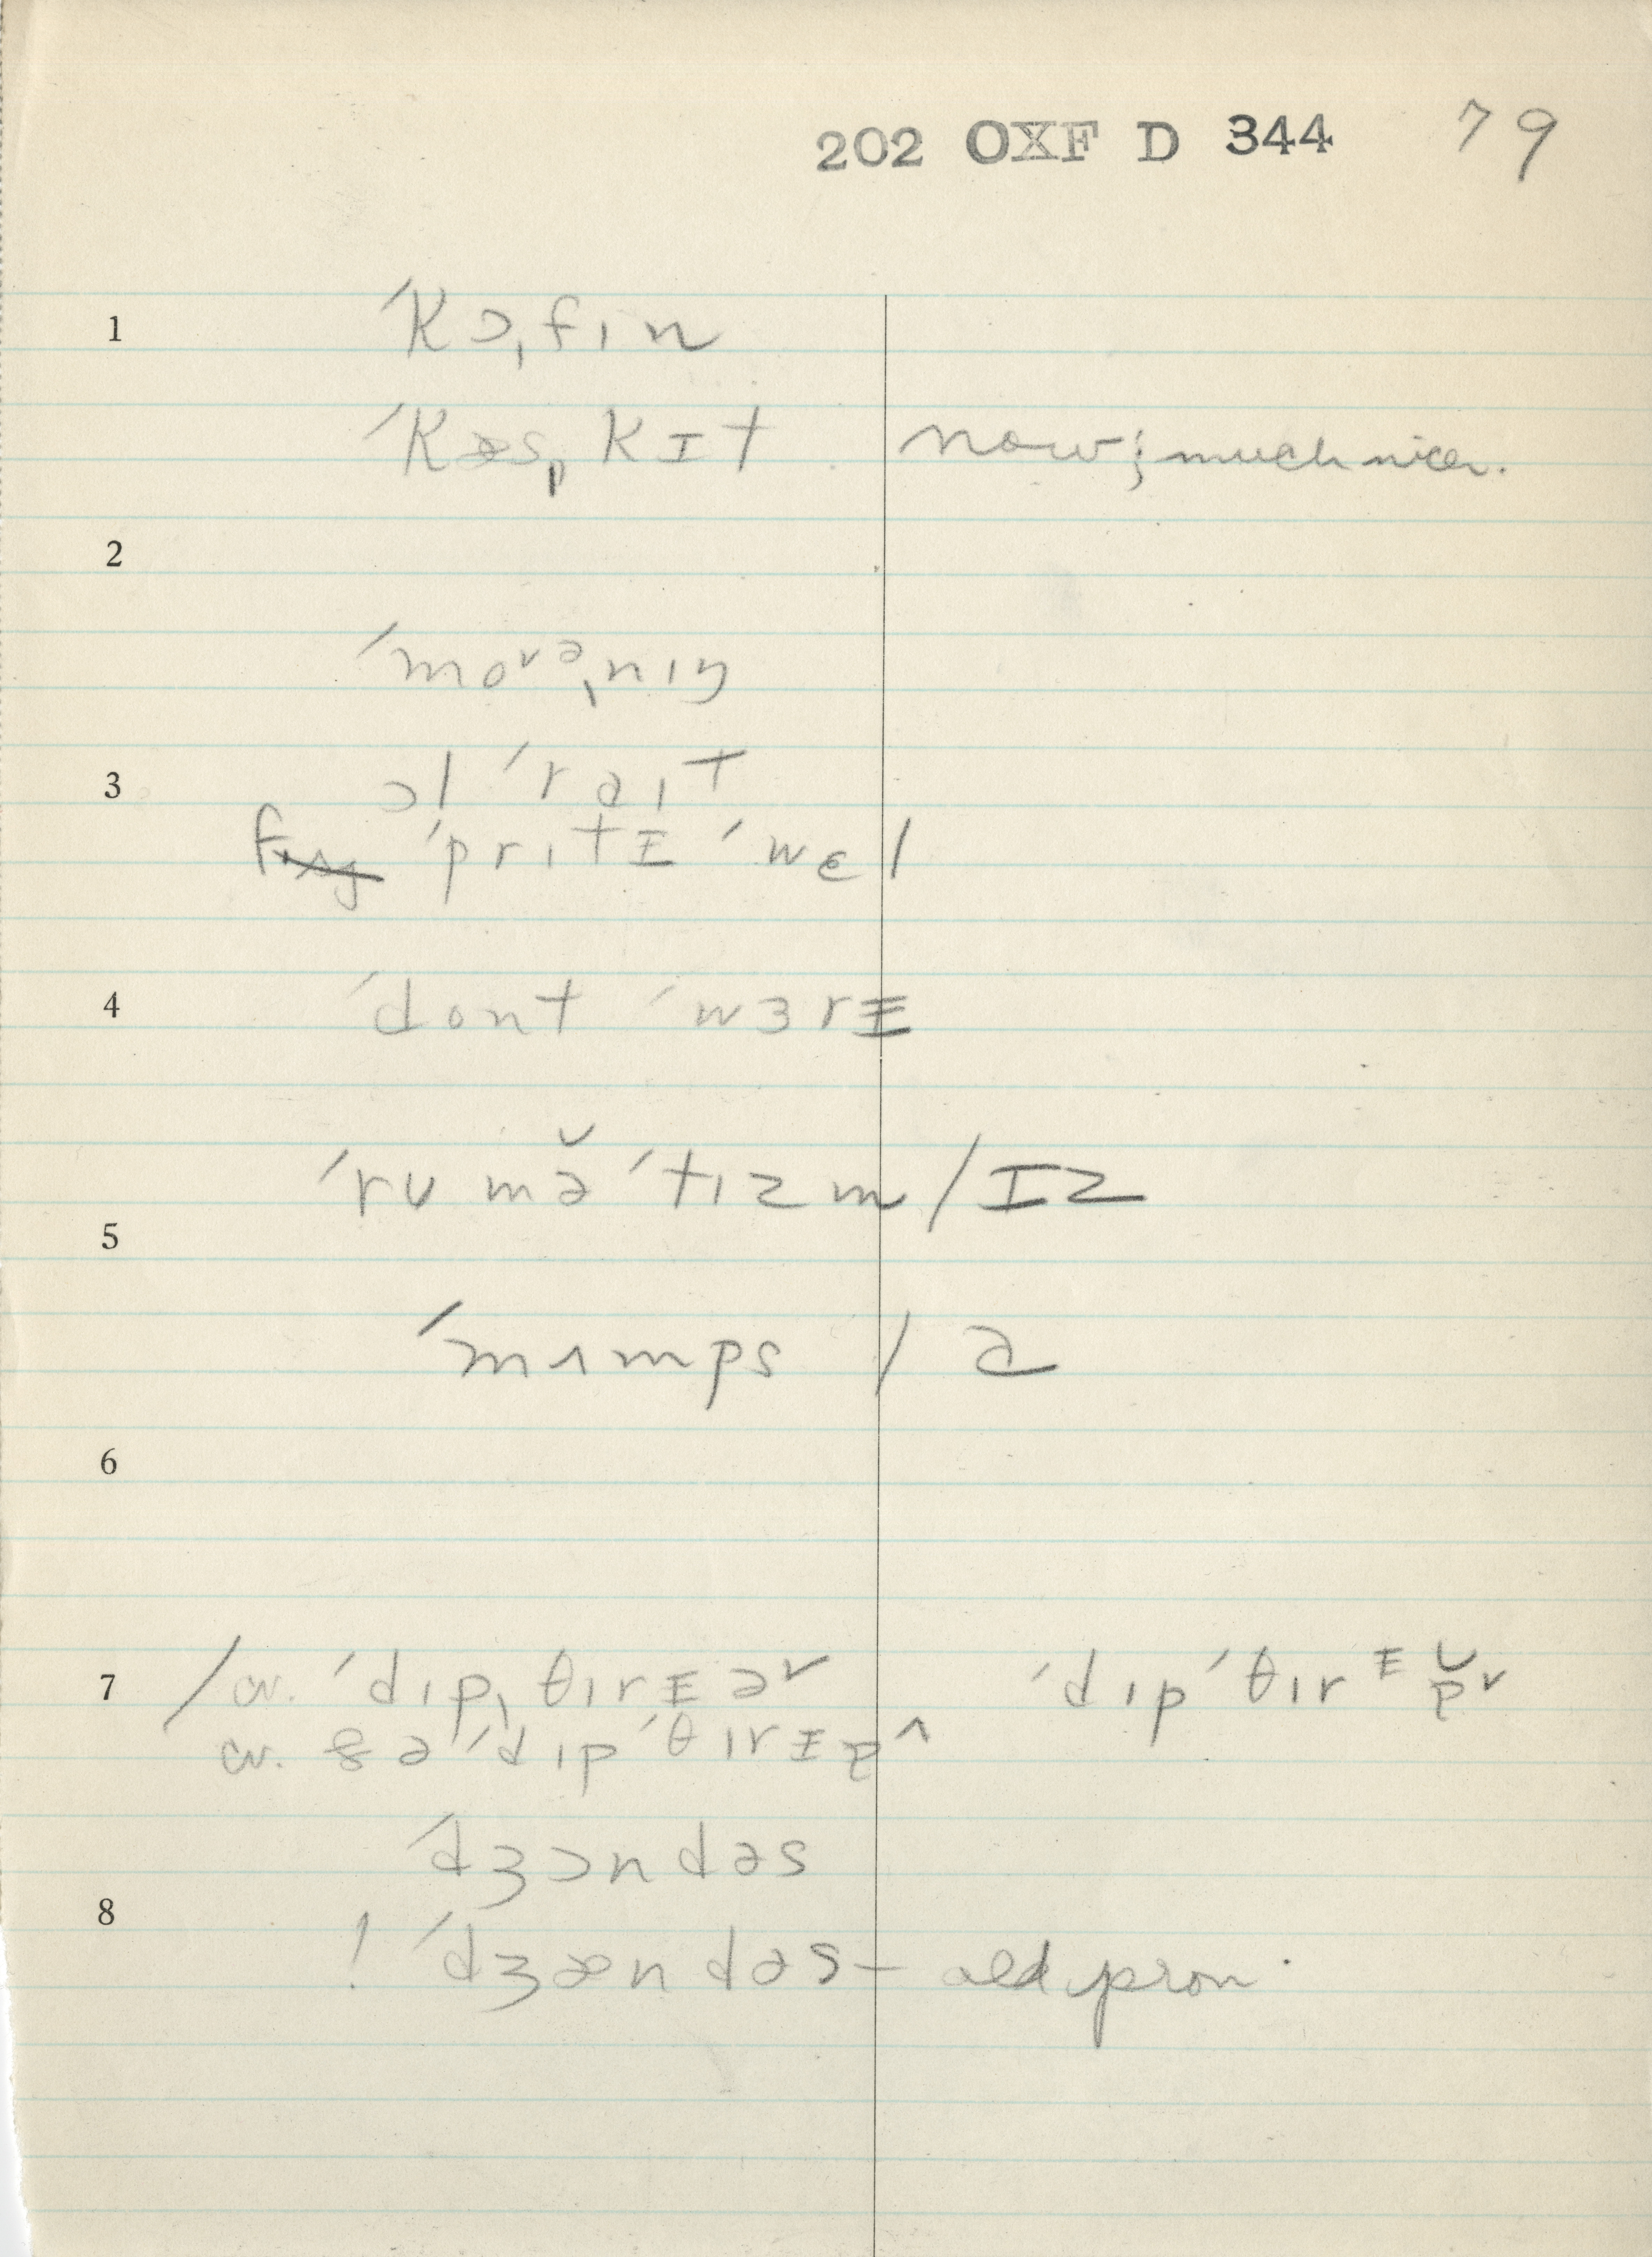 202 OXF D 344 79
1 ˊkɔˌfɪn
ˊkæsˌkɪt now; much nicer.
2
ˊmoᵛᵊˌnɪŋ
3 ɔl ˊraɪt
ˊprɪtɪ ˊwɛl
4 ˊdont ˊwɜrɪ
ˊrumə̆ˊtɪzm / ɪz
5
ˊmʌmps / ə
6
7 / cv. ˊdɪpˌθɪrɪə˅ ˊdɪpˊθɪrᶦɐ̆˅
cv. ðə ˊdɪpˊθɪrɪɐ^
ˊdʒɔndəs
8
! ˊdʒændəs – old pron.